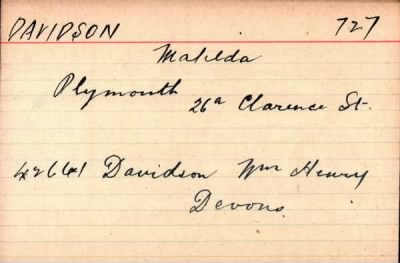 DAVIDSON 727
Matilda
Plymouth 26a Clarence St.
42641 Davidson Wm Henry
Devons.